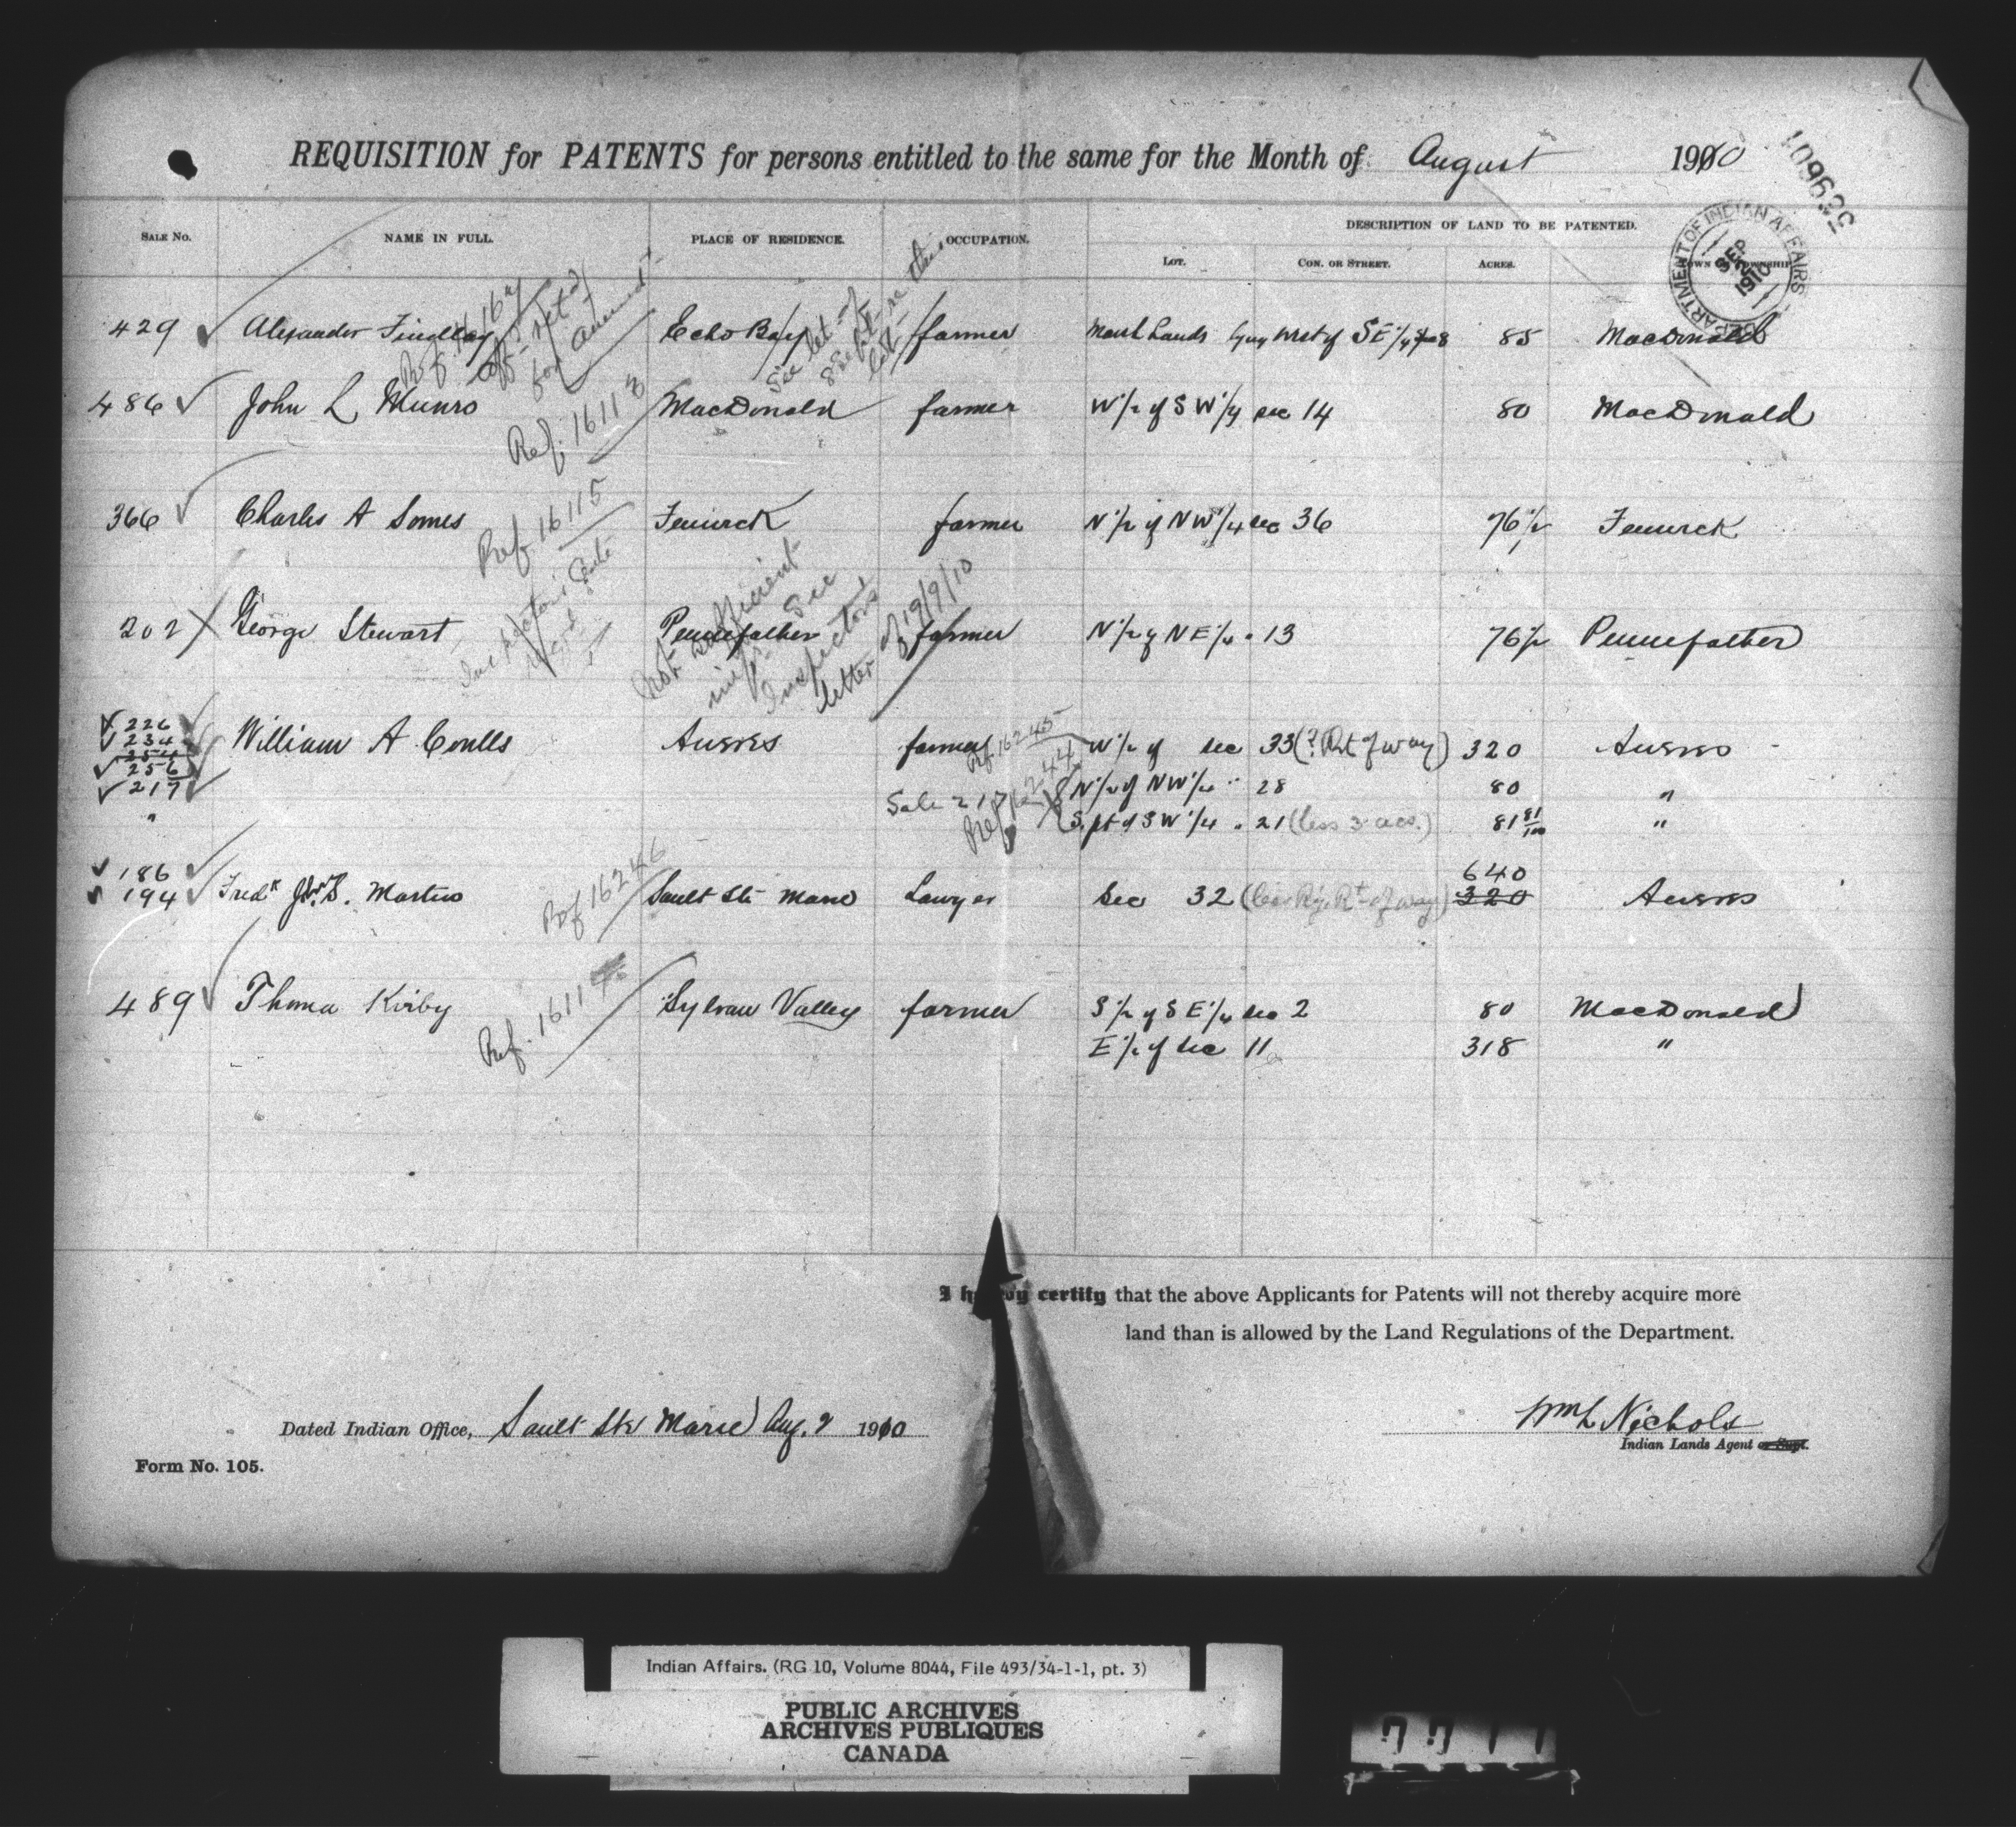 REQUISITION for PATENTS for persons entitled to the same for the Month of August 1910
109632
DEPARTMENT OF INDIAN AFFAIRS
SEP 2 1910
SALE NO. NAME IN FULL. PLACE OF RESIDENCE. OCCUPATION. DESCRIPTION OF LAND TO BE PATENTED.
LOT. CON. OR STREET. ACRES. TOWN OR TOWNSHIP
429 Alexander Findlay Echo Bay farmer Marsh Lands lying West of SE 1/4 85 MacDonald
486 John L Munro MacDonald farmer W 1/2 of SW 1/4 sec 14 80 MacDonald
Ref. 16118
366 Charles A Somes Fenwick farmer N 1/2 of NW 1/4 sec 36 76 1/2 Fenwick
Ref. 16115
202 George Stewart Pennefather farmer N 1/2 of NE 1/4 " 13 76 1/2 Pennefather
Not sufficient imp. See Inspector's letter of 19/9/10
226
234
254
256
217
"
William A Coulls Aweres farmer W 1/2 of sec 33 (? Rt of way) 320 Aweres
Ref. 16245
N 1/2 of NW 1/4 " 28 80 "
Sale 217 Ref 16244
S. pt of SW 1/4 " 21 (less 3 acs.) 81 81/100 "
186
194 Fredk Martin Sault Ste Marie Lawyer Sec 32 (less Ry. Rt of way) 640 320 Aweres
Ref 16246
489 Thoma Kirby Sylvan Valley farmer S 1/2 of SE 1/4 sec 2 80 MacDonald
Ref. 16117
E 1/2 of sec 11 318 "
I hereby certify that the above Applicants for Patents will not thereby acquire more
land than is allowed by the Land Regulations of the Department.
Dated Indian Office, Sault Ste Marie Aug. 2 1910
Wm L Nichols
Indian Lands Agent or Supt.
Form No. 105.
Indian Affairs. (RG 10, Volume 8044, File 493/34-1-1, pt. 3)
PUBLIC ARCHIVES
ARCHIVES PUBLIQUES
CANADA